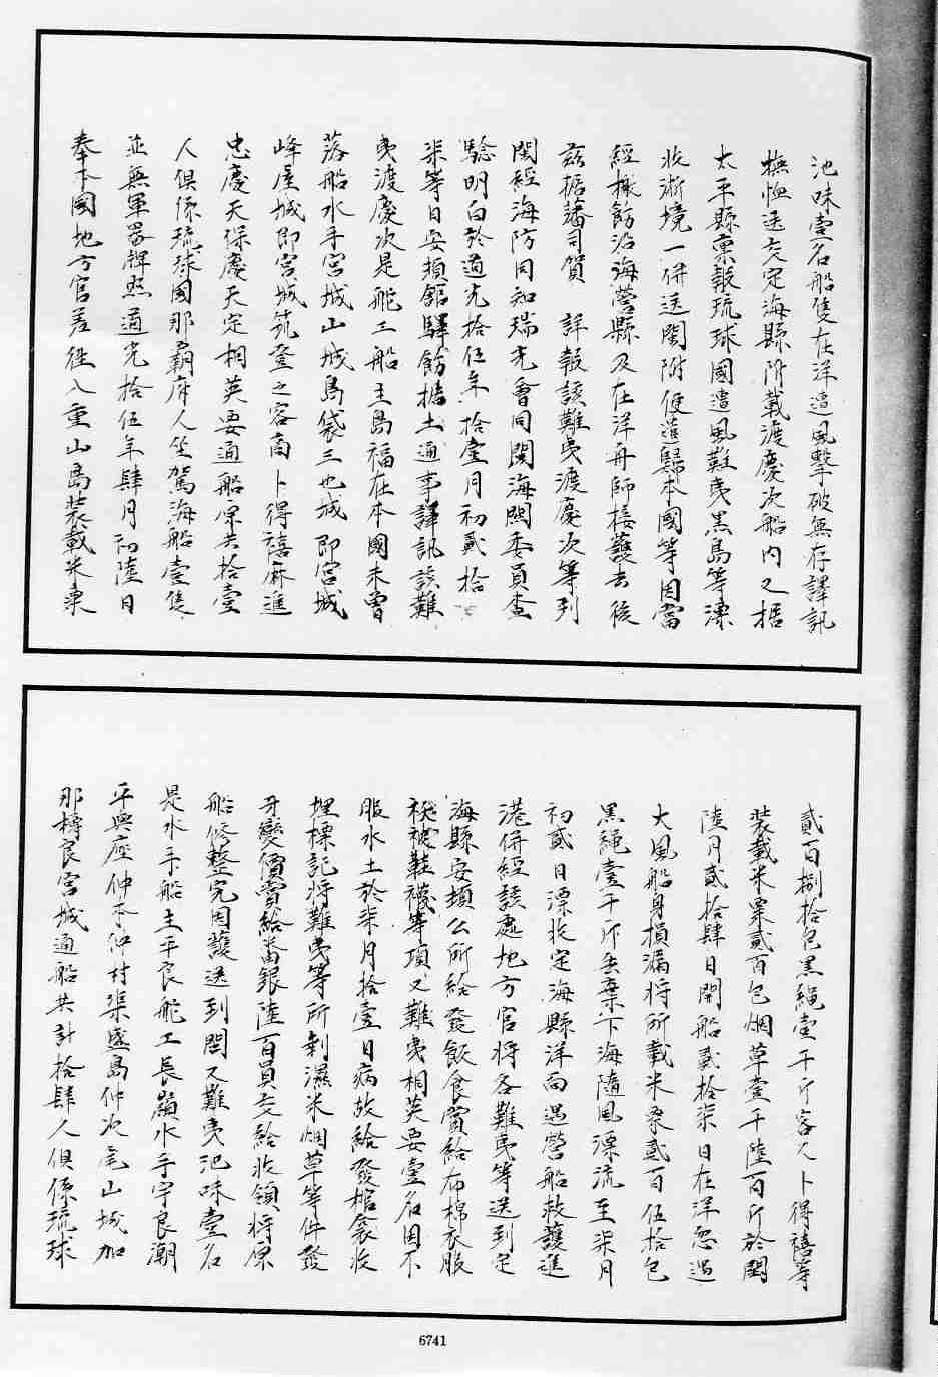 池味壹名船隻在洋遭風擊破無存譯訊
撫恤送交定海縣附載渡慶次船內又据
太平縣稟報琉球國遭風難夷黑島等漂
收浙境一併送閩附便遣歸本國等因當
經檄飭沿海營縣及在洋舟師接護去後
茲據藩司賀　詳報該難夷渡慶次等到
閩經海防同知瑞光會同閩海關委員查
驗明白於道光拾伍年拾壹月初貳拾
柒等日安頓館驛飭據土通事譯訊該難
夷渡慶次是舵工船主島福在本國未曾
落船水手宮城山城島袋三也城即宮城
峰座城即宮城筑登之客商卜得禧麻進
忠慶天保慶天定相英要通船原共拾壹
人俱係琉球國那霸府人坐駕海船壹隻
並無軍器牌照道光拾伍年肆月初陸日
奉本國地方官差往八重山島裝載米粟
貳百捌拾包黑繩壹千斤客人卜得禧等
裝載米粟貳百包烟草壹千陸百斤於閏
陸月貳拾肆日開船貳拾柒日在洋忽遇
大風船身損漏將所載米粟貳百伍拾包
黑繩壹千斤丟棄下海隨風漂流至柒月
初貳日漂收定海縣洋面遇營船救護進
港併經該處地方官將各難夷等送到定
海縣安頓公所給發飯食賞給布棉衣服
被鞋襪等項又難夷相英要壹名因不
服水土於柒月拾壹日病故給發棺衾收
埋標記將難夷等所剩濕米烟草等件發
牙變價賣給番銀陸百員交給收領將原
船修整完固護送到閩又難夷池味壹名
是水手船主平良舵工長嶺水手宇良潮
平與座仲本仲村渠盛島仲次尾山城加
那樽良宮城通船共計拾肆人俱係琉球
6741